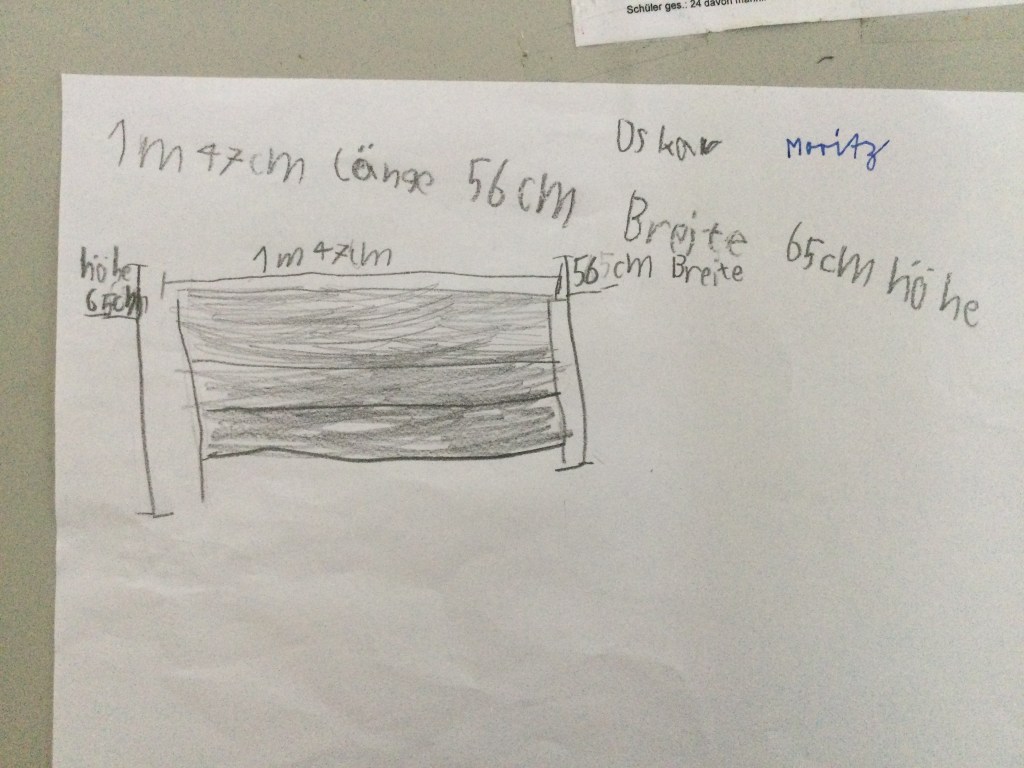 Schüler ges.: 24 davon
Oskar Moritz
1m 47cm länge 56cm Breite 65cm höhe
höhe
65cm
1m 47cm
56cm Breite